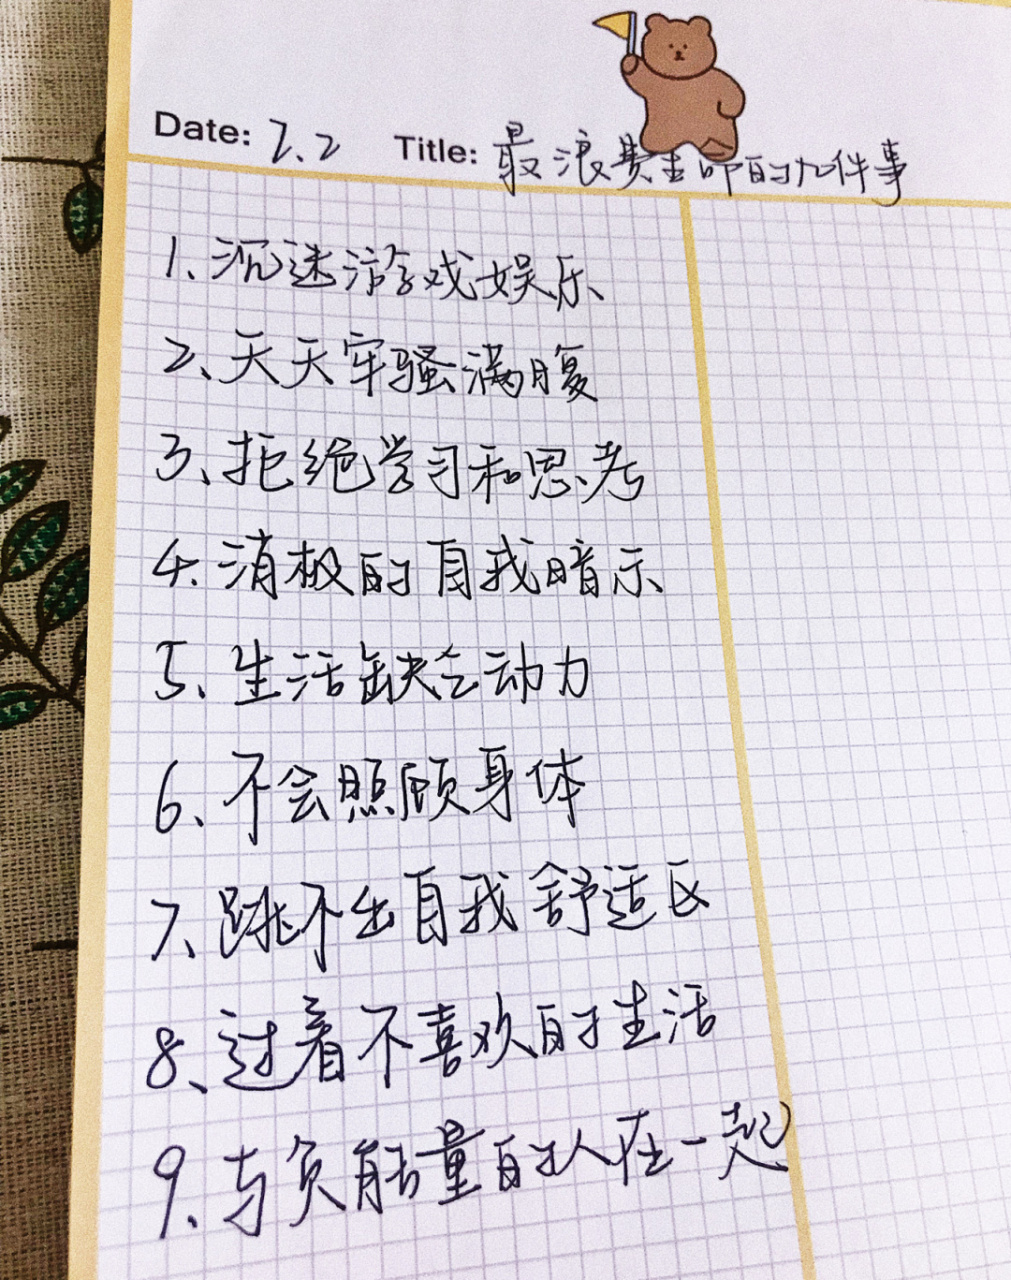 Date: 7.2 Title: 最浪费生命的九件事
1、沉迷游戏娱乐
2、天天牢骚满腹
3、拒绝学习和思考
4.消极的自我暗示
5、生活缺乏动力
6、不会照顾身体
7、跳不出自我舒适区
8、过着不喜欢的生活
9.与负能量的人在一起